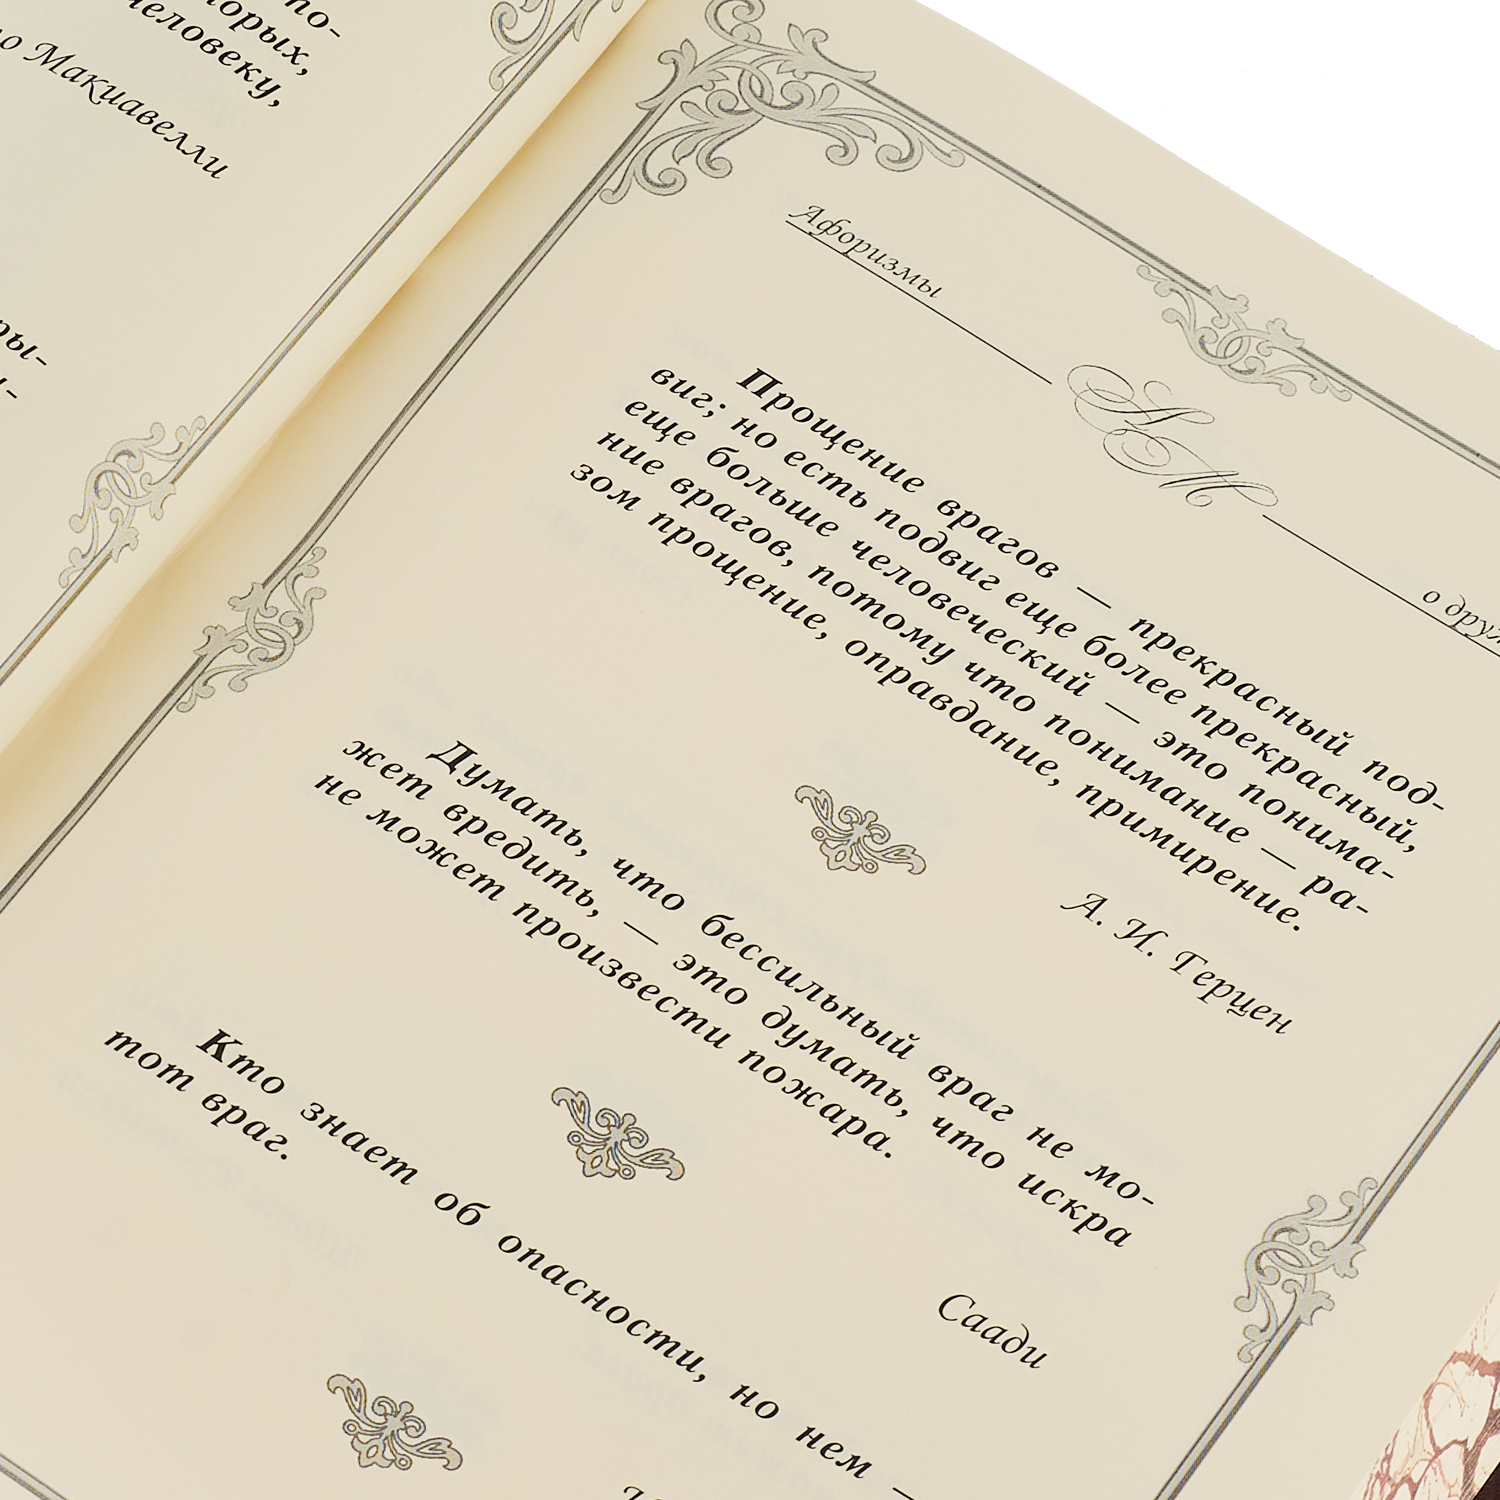 человеку,
Макиавелли
Афоризмы
АМ
Прощение врагов — прекрасный под-
виг; но есть подвиг еще более прекрасный,
еще больше человеческий — это понима-
ние врагов, потому что понимание — ра-
зом прощение, оправдание, примирение.
А. И. Герцен
Думать, что бессильный враг не мо-
жет вредить, — это думать, что искра
не может произвести пожара.
Саади
Кто знает об опасности, но нем —
тот враг.